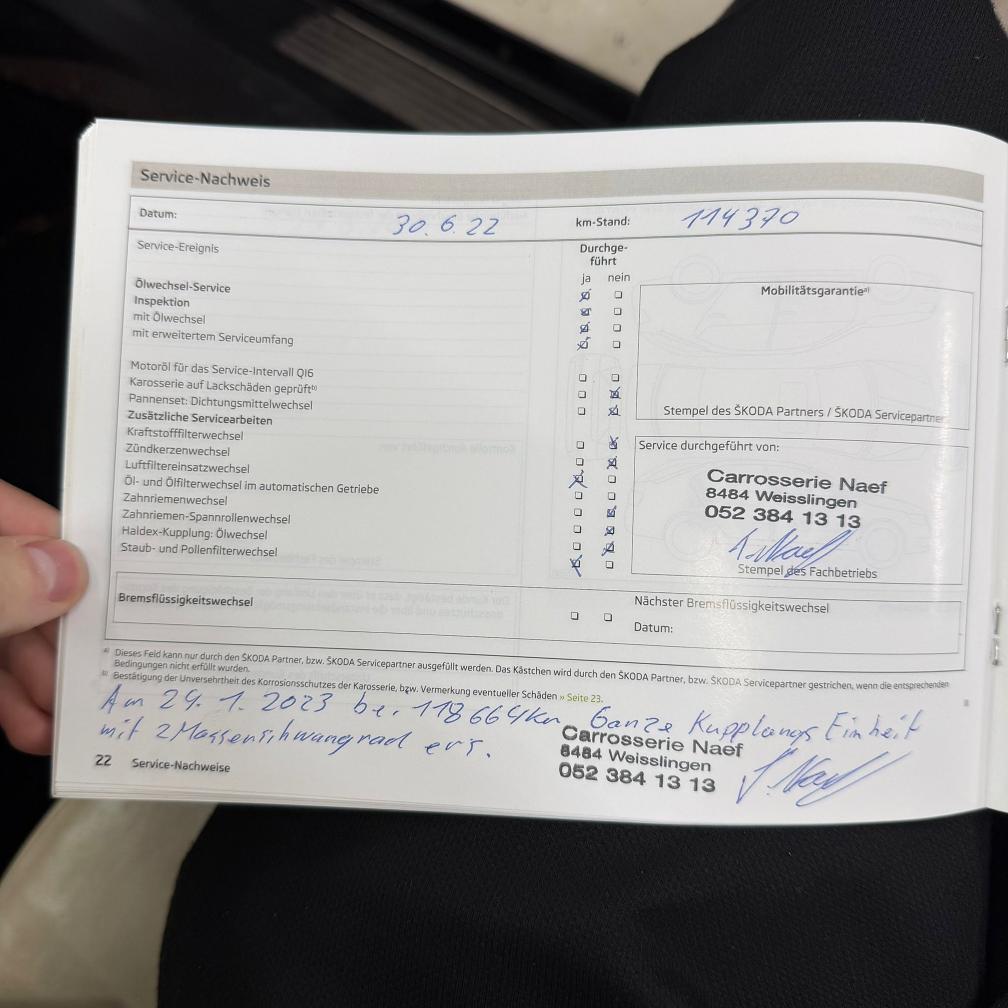 Service-Nachweis
Datum: 30.6.22 km-Stand: 114370
Service-Ereignis
Durchge-
führt
ja nein
Ölwechsel-Service
Inspektion
mit Ölwechsel
mit erweitertem Serviceumfang
Motoröl für das Service-Intervall QI6
Karosserie auf Lackschäden geprüft b)
Pannenset: Dichtungsmittelwechsel
Zusätzliche Servicearbeiten
Kraftstofffilterwechsel
Zündkerzenwechsel
Luftfiltereinsatzwechsel
Öl- und Ölfilterwechsel im automatischen Getriebe
Zahnriemenwechsel
Zahnriemen-Spannrollenwechsel
Haldex-Kupplung: Ölwechsel
Staub- und Pollenfilterwechsel
Mobilitätsgarantie a)
Stempel des ŠKODA Partners / ŠKODA Servicepartner
Service durchgeführt von:
Carrosserie Naef
8484 Weisslingen
052 384 13 13
Stempel des Fachbetriebs
Bremsflüssigkeitswechsel
Nächster Bremsflüssigkeitswechsel
Datum:
a) Dieses Feld kann nur durch den ŠKODA Partner, bzw. ŠKODA Servicepartner ausgefüllt werden. Das Kästchen wird durch den ŠKODA Partner, bzw. ŠKODA Servicepartner gestrichen, wenn die entsprechenden
Bedingungen nicht erfüllt wurden.
b) Bestätigung der Unversehrtheit des Korrosionsschutzes der Karosserie, bzw. Vermerkung eventueller Schäden » Seite 23.
Am 24.1.2023 bei 118664Km Ganze Kupplungs Einheit
mit 2Massenschwangrad ers.
Carrosserie Naef
8484 Weisslingen
052 384 13 13
22 Service-Nachweise